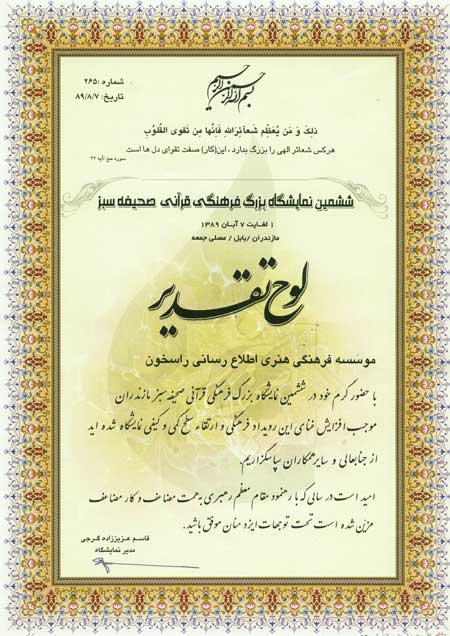 بسم الله الرحمن الرحیم
شماره: ۲۶۵
تاریخ: ۸۹/۸/۷
ذلِكَ وَ مَن یُعَظِّم شَعائِرَاللهِ فَاِنَّها مِن تَقوَی القُلُوبِ
هرکس شعائر الهی را بزرگ بدارد ، این(کار) صفت تقوای دل ها است
سوره حج آیه ۳۲
ششمین نمایشگاه بزرگ فرهنگی قرآنی صحیفه سبز
۱ لغایت ۷ آبان ۱۳۸۹
مازندران /بابل / مصلی جمعه
لوح تقدیر
موسسه فرهنگی هنری اطلاع رسانی راسخون
با حضور گرم خود در ششمین نمایشگاه بزرگ فرهنگی قرآنی صحیفه سبز مازندران
موجب افزایش غنای این رویداد فرهنگی و ارتقاء سطح کمی و کیفی نمایشگاه شده اید
از جنابعالی و سایر همکاران سپاسگزاریم.
امید است در سالی که با رهنمود مقام معظم رهبری به همت مضاعف و کار مضاعف
مزین شده است تحت توجهات ایزد منان موفق باشید.
قاسم عزیززاده گرجی
مدیر نمایشگاه